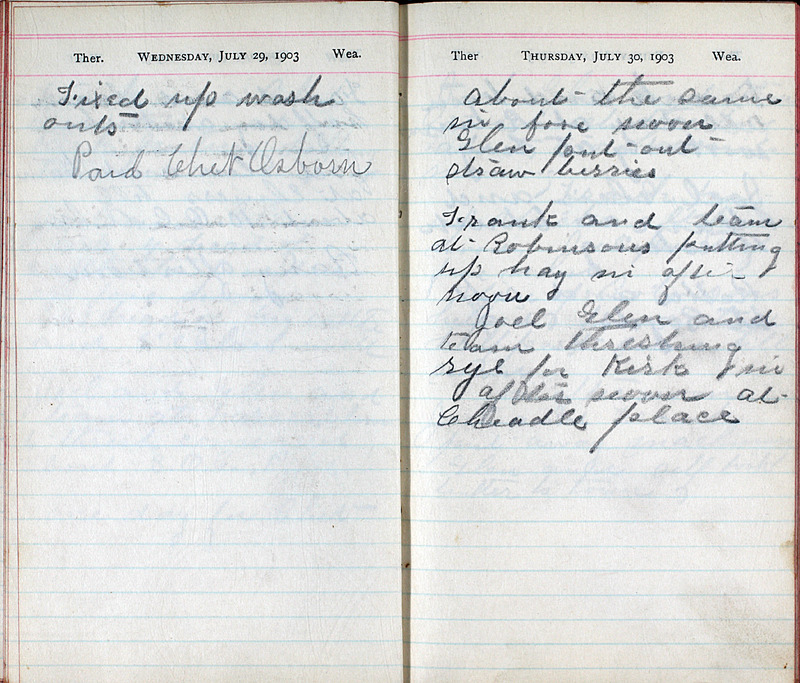 Ther. WEDNESDAY, JULY 29, 1903 Wea.
Fixed up wash
outs
Paid Chet Osborn
Ther THURSDAY, JULY 30, 1903 Wea.
about the same
in fore noon
Glen put out
straw berries
Frank and team
at Robinsons putting
up hay in after
noon
Joel Glen and
team threshing
rye for Kirk in
after noon at
Cheadle place